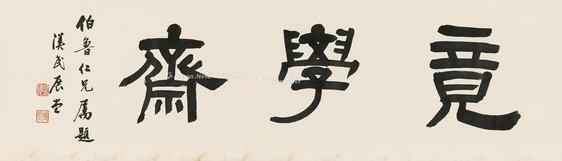 竟學齋
伯魯仁兄屬題
漢民展堂